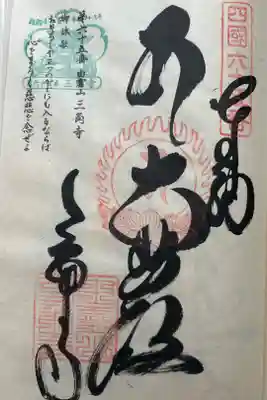 四國六十五番
奉納
大悲殿
三角寺
第六十五番 由霊山 三角寺
御詠歌
おそろしや三つの角にも入るならば
心をまろく慈悲を念ぜよ